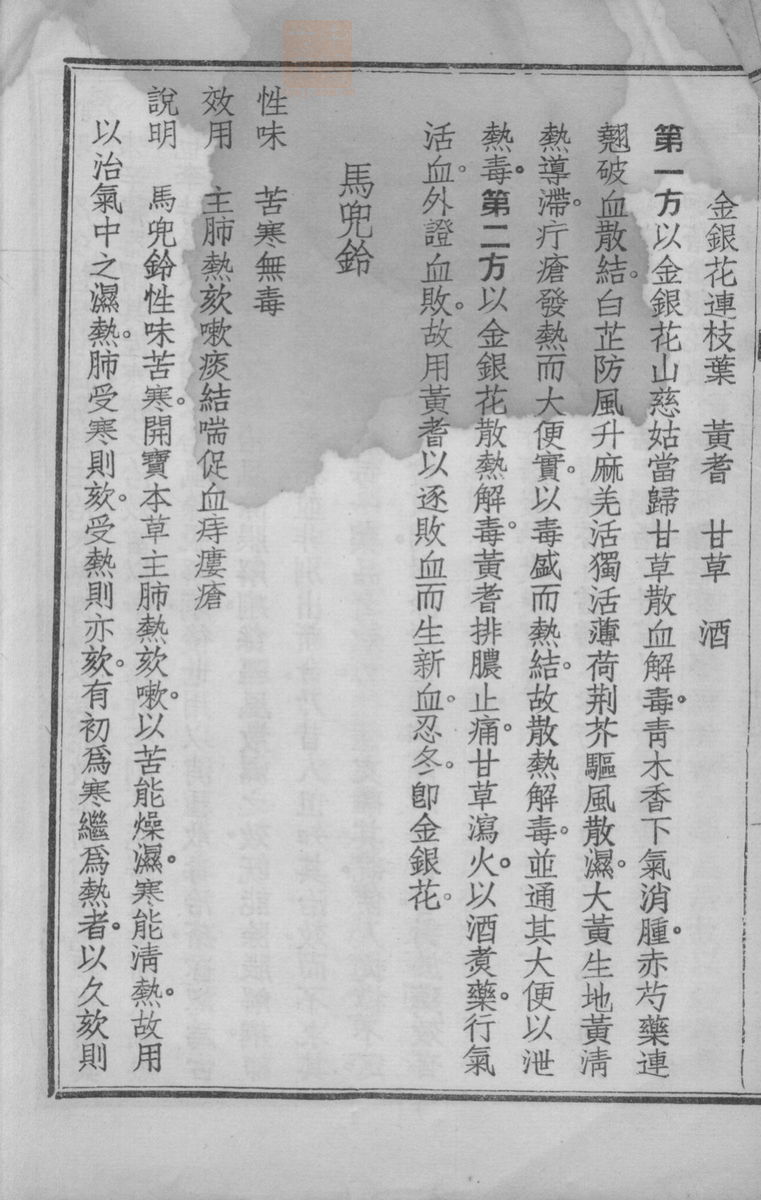 金銀花連枝葉　黃耆　甘草　酒
第一方以金銀花山慈姑當歸甘草散血解毒。青木香下氣消腫。赤芍藥連
翹破血散結。白芷防風升麻羌活獨活薄荷荆芥驅風散濕。大黃生地黃淸
熱導滯。疔瘡發熱而大便實。以毒盛而熱結。故散熱解毒。並通其大便以泄
熱毒。第二方以金銀花散熱解毒。黃耆排膿止痛。甘草瀉火。以酒煑藥。行氣
活血。外證血敗。故用黃耆以逐敗血而生新血。忍冬。卽金銀花。
馬兜鈴
性味　苦寒無毒
效用　主肺熱欬嗽痰結喘促血痔瘻瘡
說明　馬兜鈴性味苦寒。開寶本草主肺熱欬嗽。以苦能燥濕。寒能淸熱。故用
以治氣中之濕熱。肺受寒則欬。受熱則亦欬。有初爲寒繼爲熱者。以久欬則